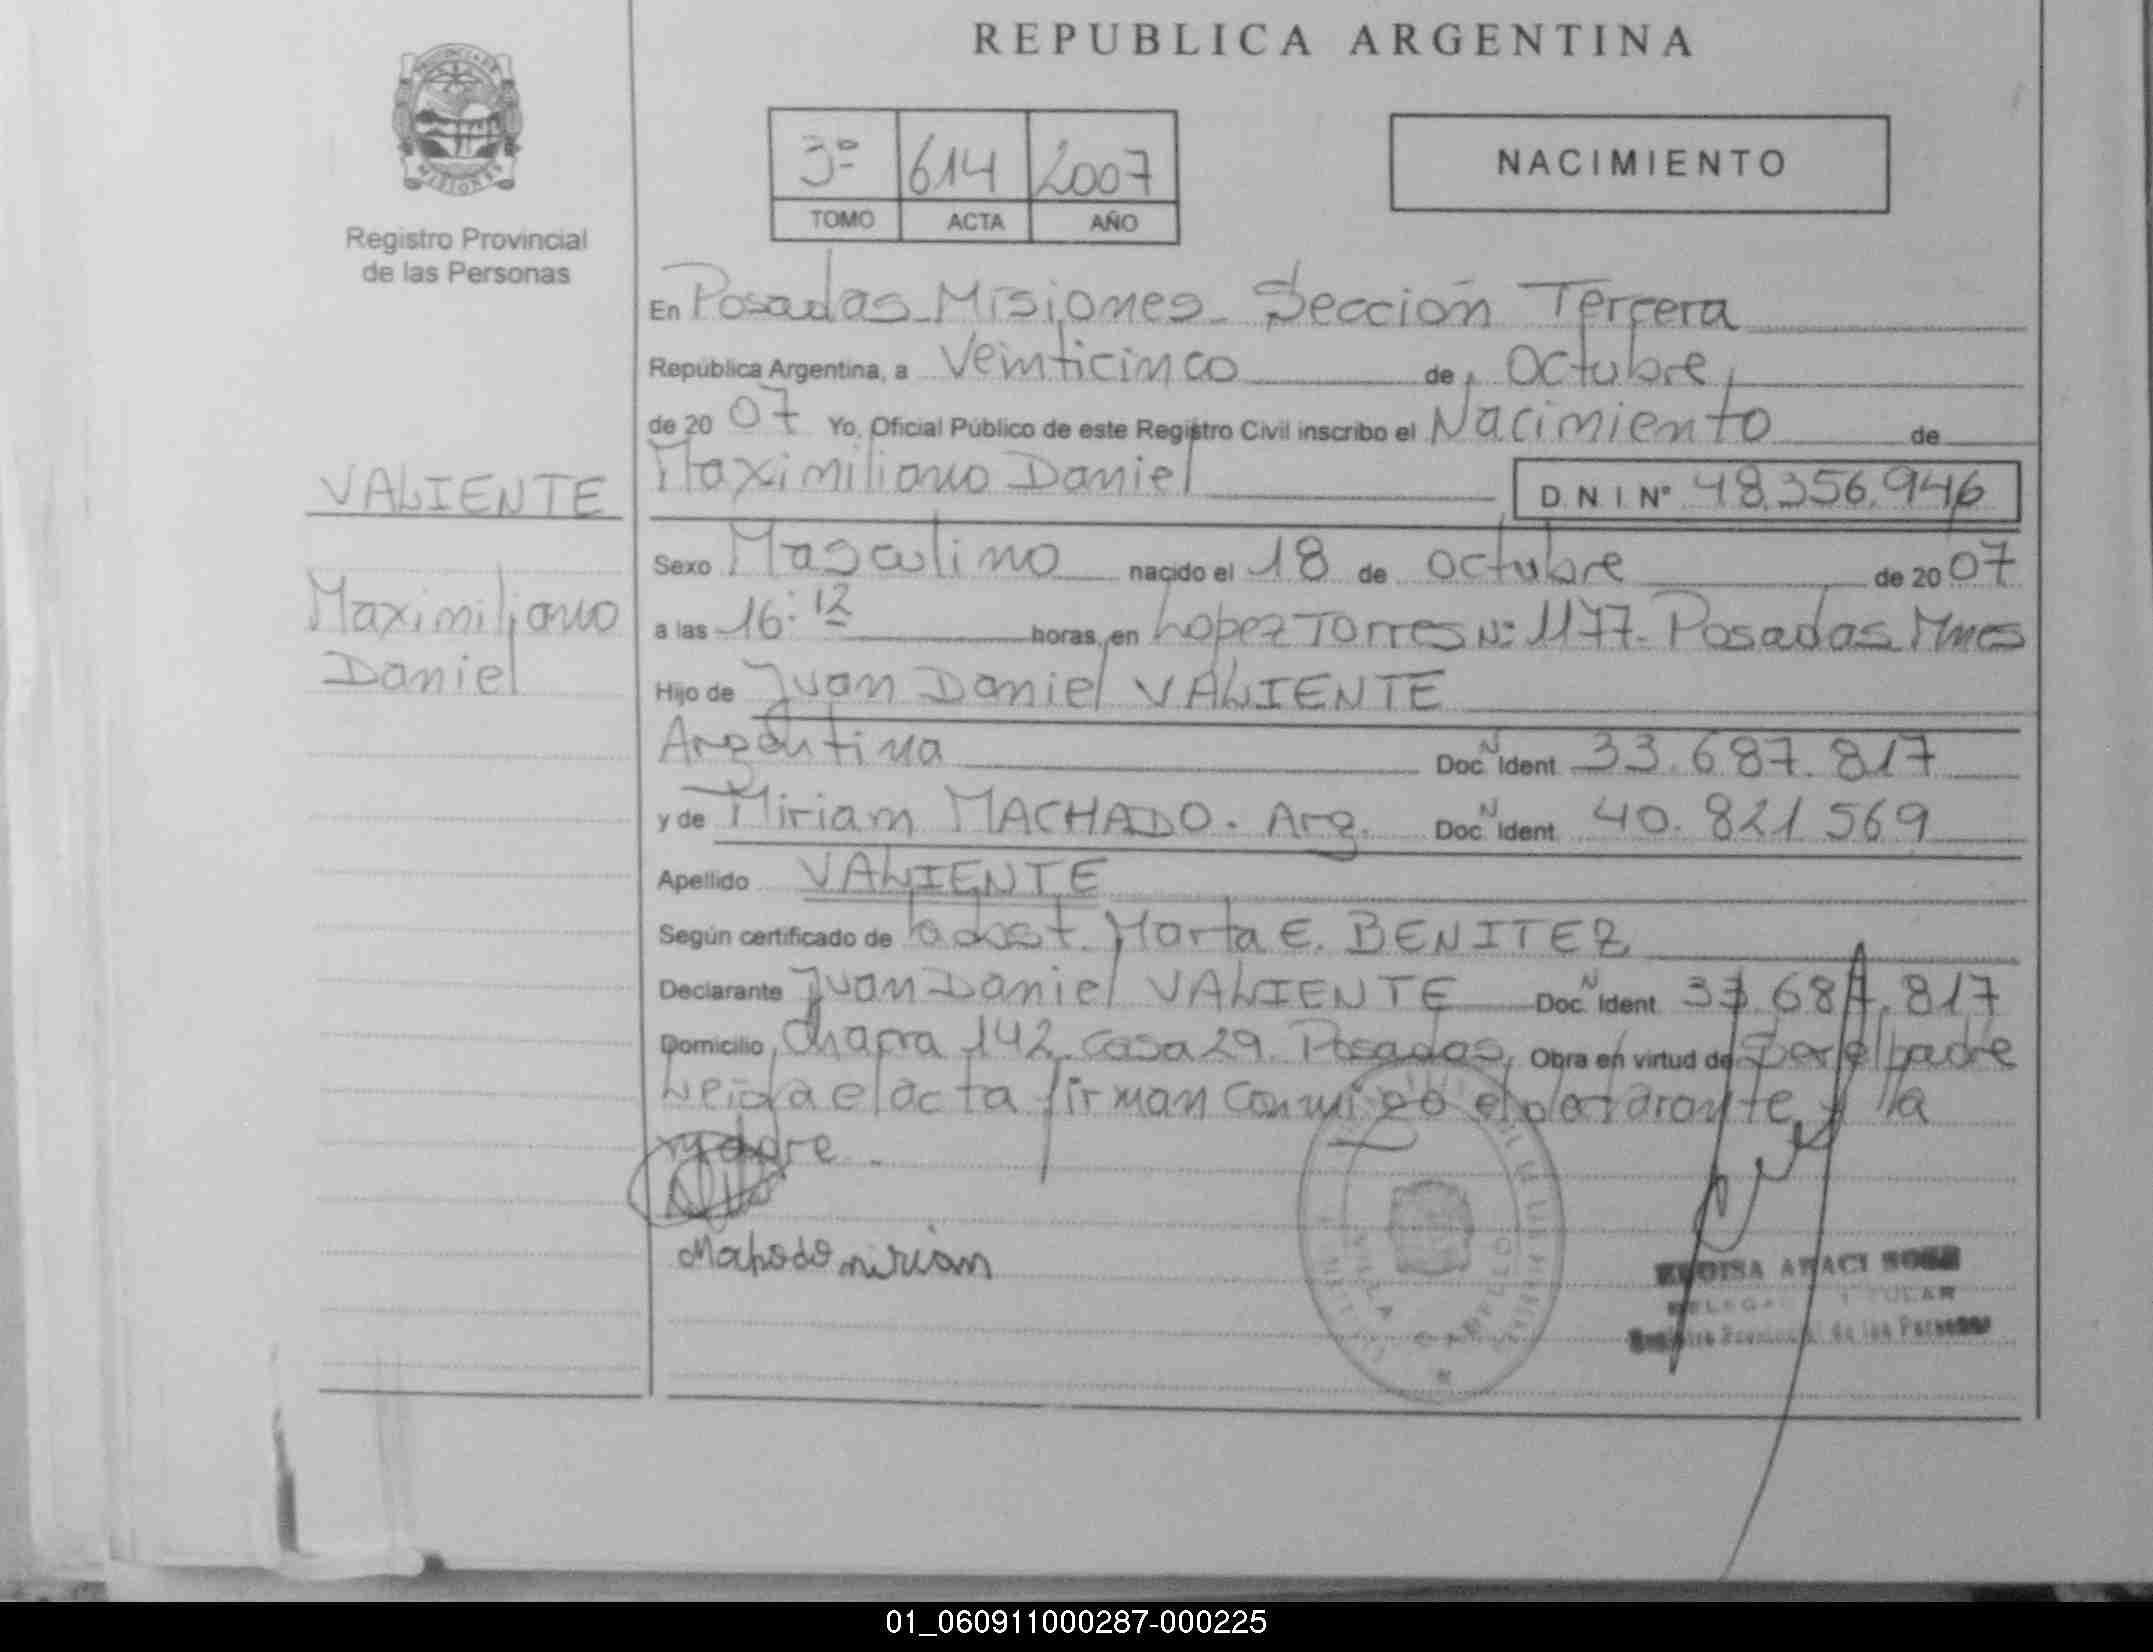 REPUBLICA ARGENTINA
PROVINCIA DE
MISIONES
Registro Provincial
de las Personas
3º 614 2007
TOMO ACTA AÑO
NACIMIENTO
En Posadas Misiones Sección Tercera
República Argentina, a Veinticinco de Octubre
de 20 07 Yo, Oficial Público de este Registro Civil inscribo el Nacimiento de
VALIENTE
Maximiliano Daniel D.N.I. Nº 48.356.946
Sexo Masculino nacido el 18 de octubre de 20 07
Maximiliano
Daniel
a las 16:12 horas, en Lopez Torres Nº 1177. Posadas Mnes
Hijo de Juan Daniel VALIENTE
Argentina Doc. N Ident. 33.687.817
y de Miriam MACHADO. Arg. Doc. N Ident. 40.821 569
Apellido VALIENTE
Según certificado de la obst. Marta E. BENITEZ
Declarante Juan Daniel VALIENTE Doc. N Ident. 33.687.817
Domicilio Chacra 142. casa 29. Posadas, Obra en virtud de Ser el padre
Leida el acta firman conmigo el declarante y la
madre.
Machado mirian
VILLA CABELLO
ARACI
DELEGADO TITULAR
Registro Provincial de las Personas
01_060911000287-000225